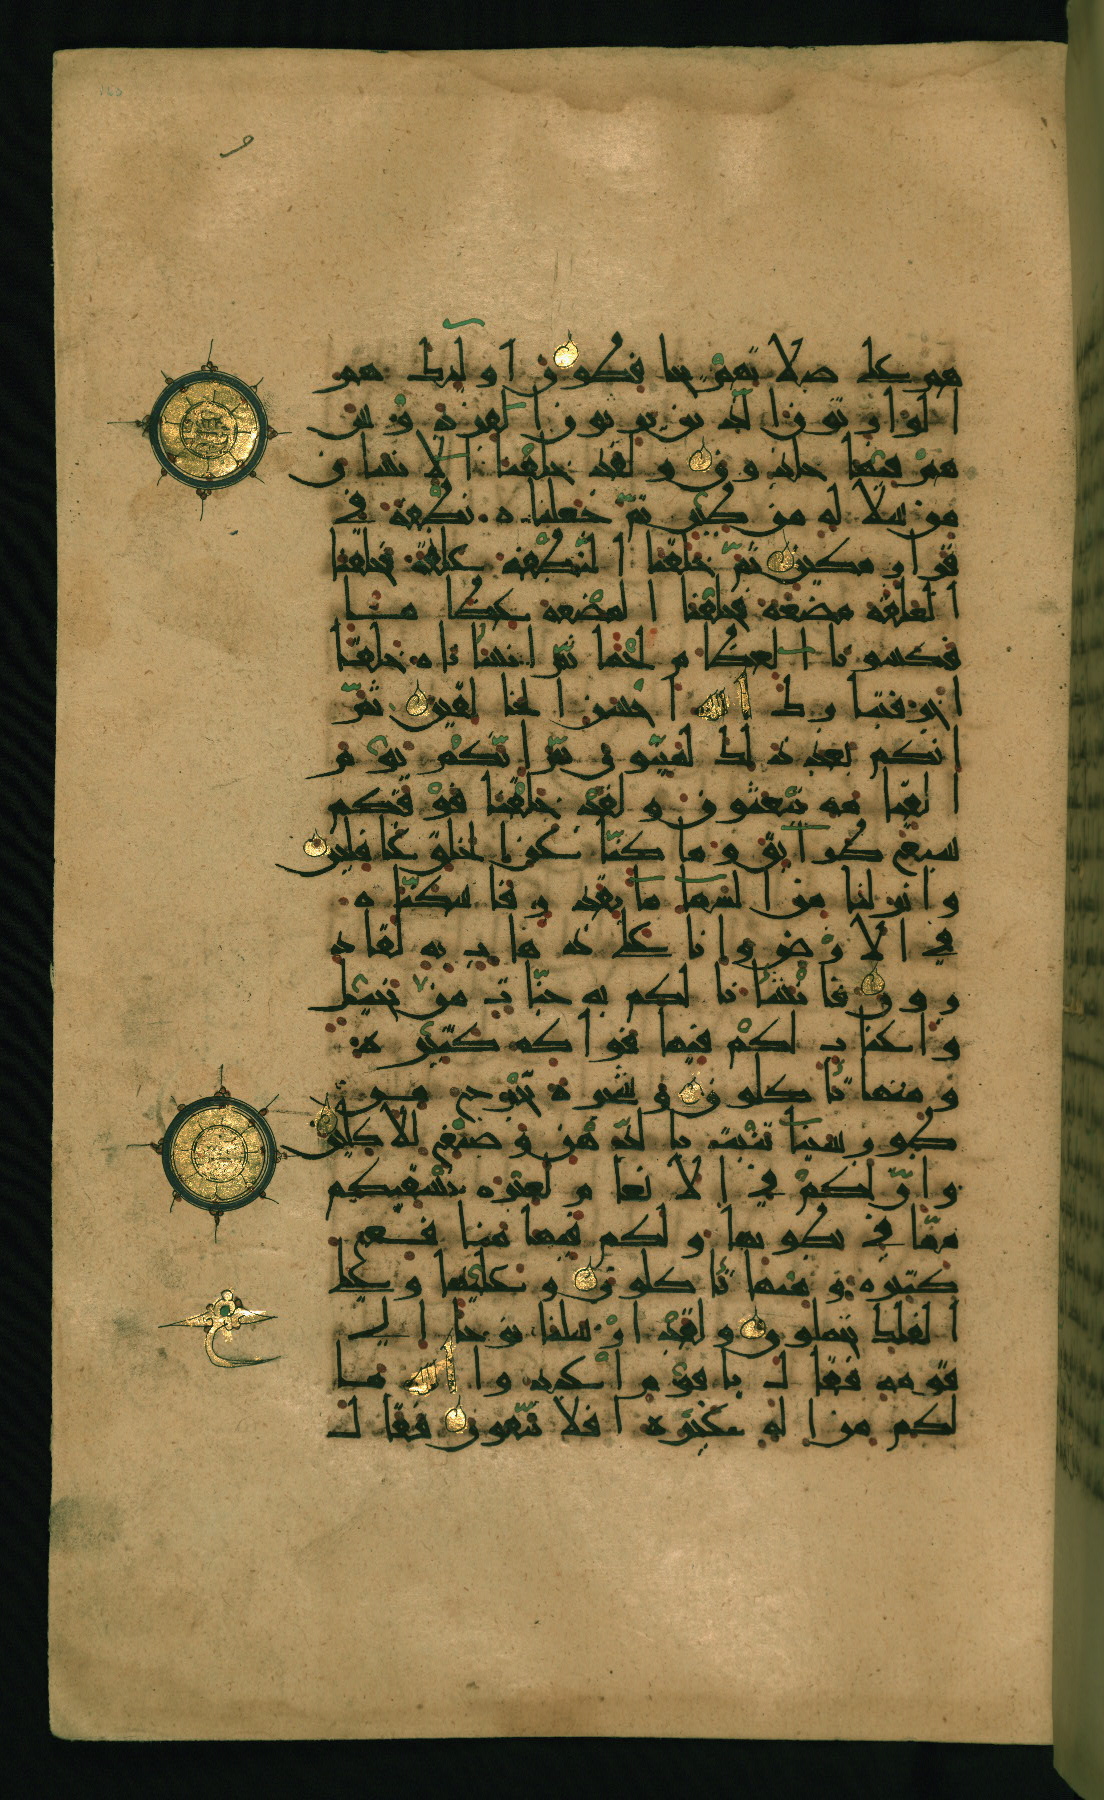 هم على صلاتهم يحافظون اولئك هم
الوارثون الذين يرثون الفردوس
هم فيها خلدون ولقد خلقنا الانسان
من سلالة من طين ثم جعلناه نطفة في
قرار مكين ثم خلقنا النطفة علقة فخلقنا
العلقة مضغة فخلقنا المضغة عظاما
فكسونا العظام لحما ثم انشاناه خلقا
اخر فتبارك الله احسن الخالقين ثم
انكم بعد ذلك لميتون ثم انكم يوم
القيامة تبعثون ولقد خلقنا فوقكم
سبع طرايق وما كنا عن الخلق غافلين
وانزلنا من السما ما بقدر فاسكناه
في الارض وانا على ذهاب به لقاد
رون فانشانا لكم به جنات من نخيل
واعناب لكم فيها فواكه كثيرة
ومنها تاكلون وشجرة تخرج من
طور سينا تنبت بالدهن وصبغ للاكلين
وان لكم في الانعام لعبرة نسقيكم
مما في بطونها ولكم فيها منافع
كثيرة ومنها تاكلون وعليها وعلى
الفلك تحملون ولقد ارسلنا نوحا الى
قومه فقال يا قوم اعبدوا الله ما
لكم من اله غيره افلا تتقون فقال